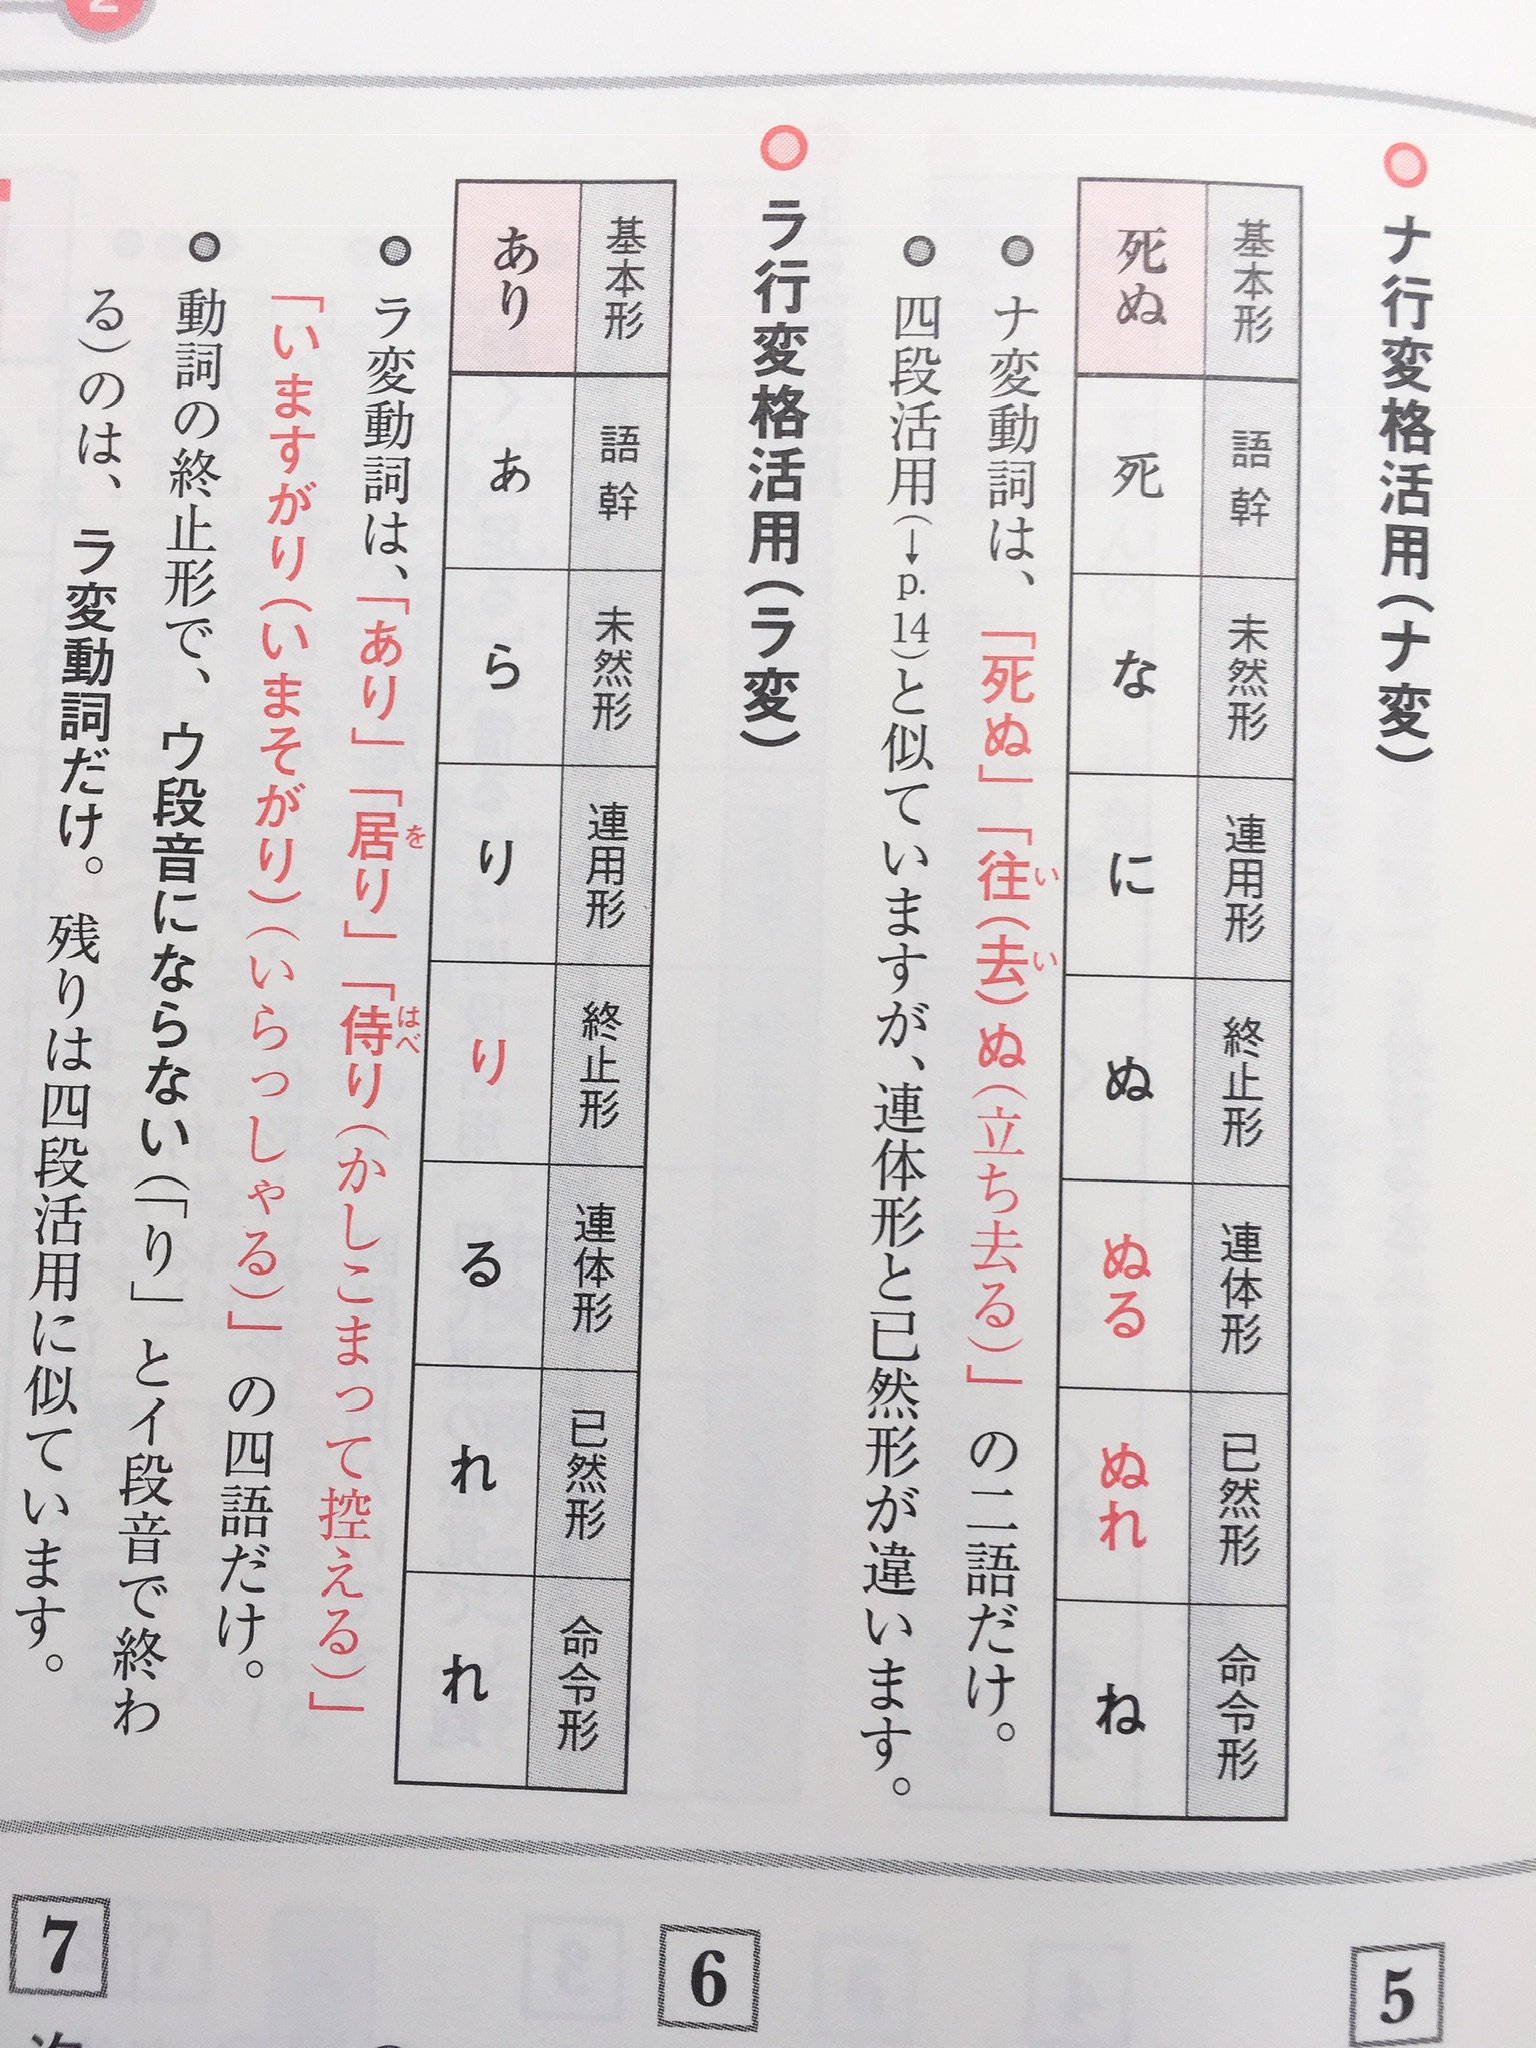 2
ナ行変格活用(ナ変)
基本形 語幹 未然形 連用形 終止形 連体形 已然形 命令形
死ぬ 死 な に ぬ ぬる ぬれ ね
ナ変動詞は、「死ぬ」「往(去)ぬ(立ち去る)」の二語だけ。
い い
四段活用(→p.14)と似ていますが、連体形と已然形が違います。
ラ行変格活用(ラ変)
基本形 語幹 未然形 連用形 終止形 連体形 已然形 命令形
あり あ ら り り る れ れ
ラ変動詞は、「あり」「居り」「侍り(かしこまって控える)」
を はべ
「いますがり(いまそがり)(いらっしゃる)」の四語だけ。
動詞の終止形で、ウ段音にならない(「り」とイ段音で終わ
る)のは、ラ変動詞だけ。残りは四段活用に似ています。
5
6
7